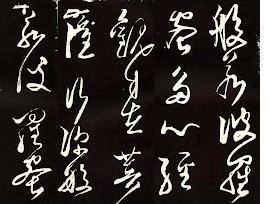 般若波羅
蜜多心經
觀自在菩
薩行深般
若波羅蜜